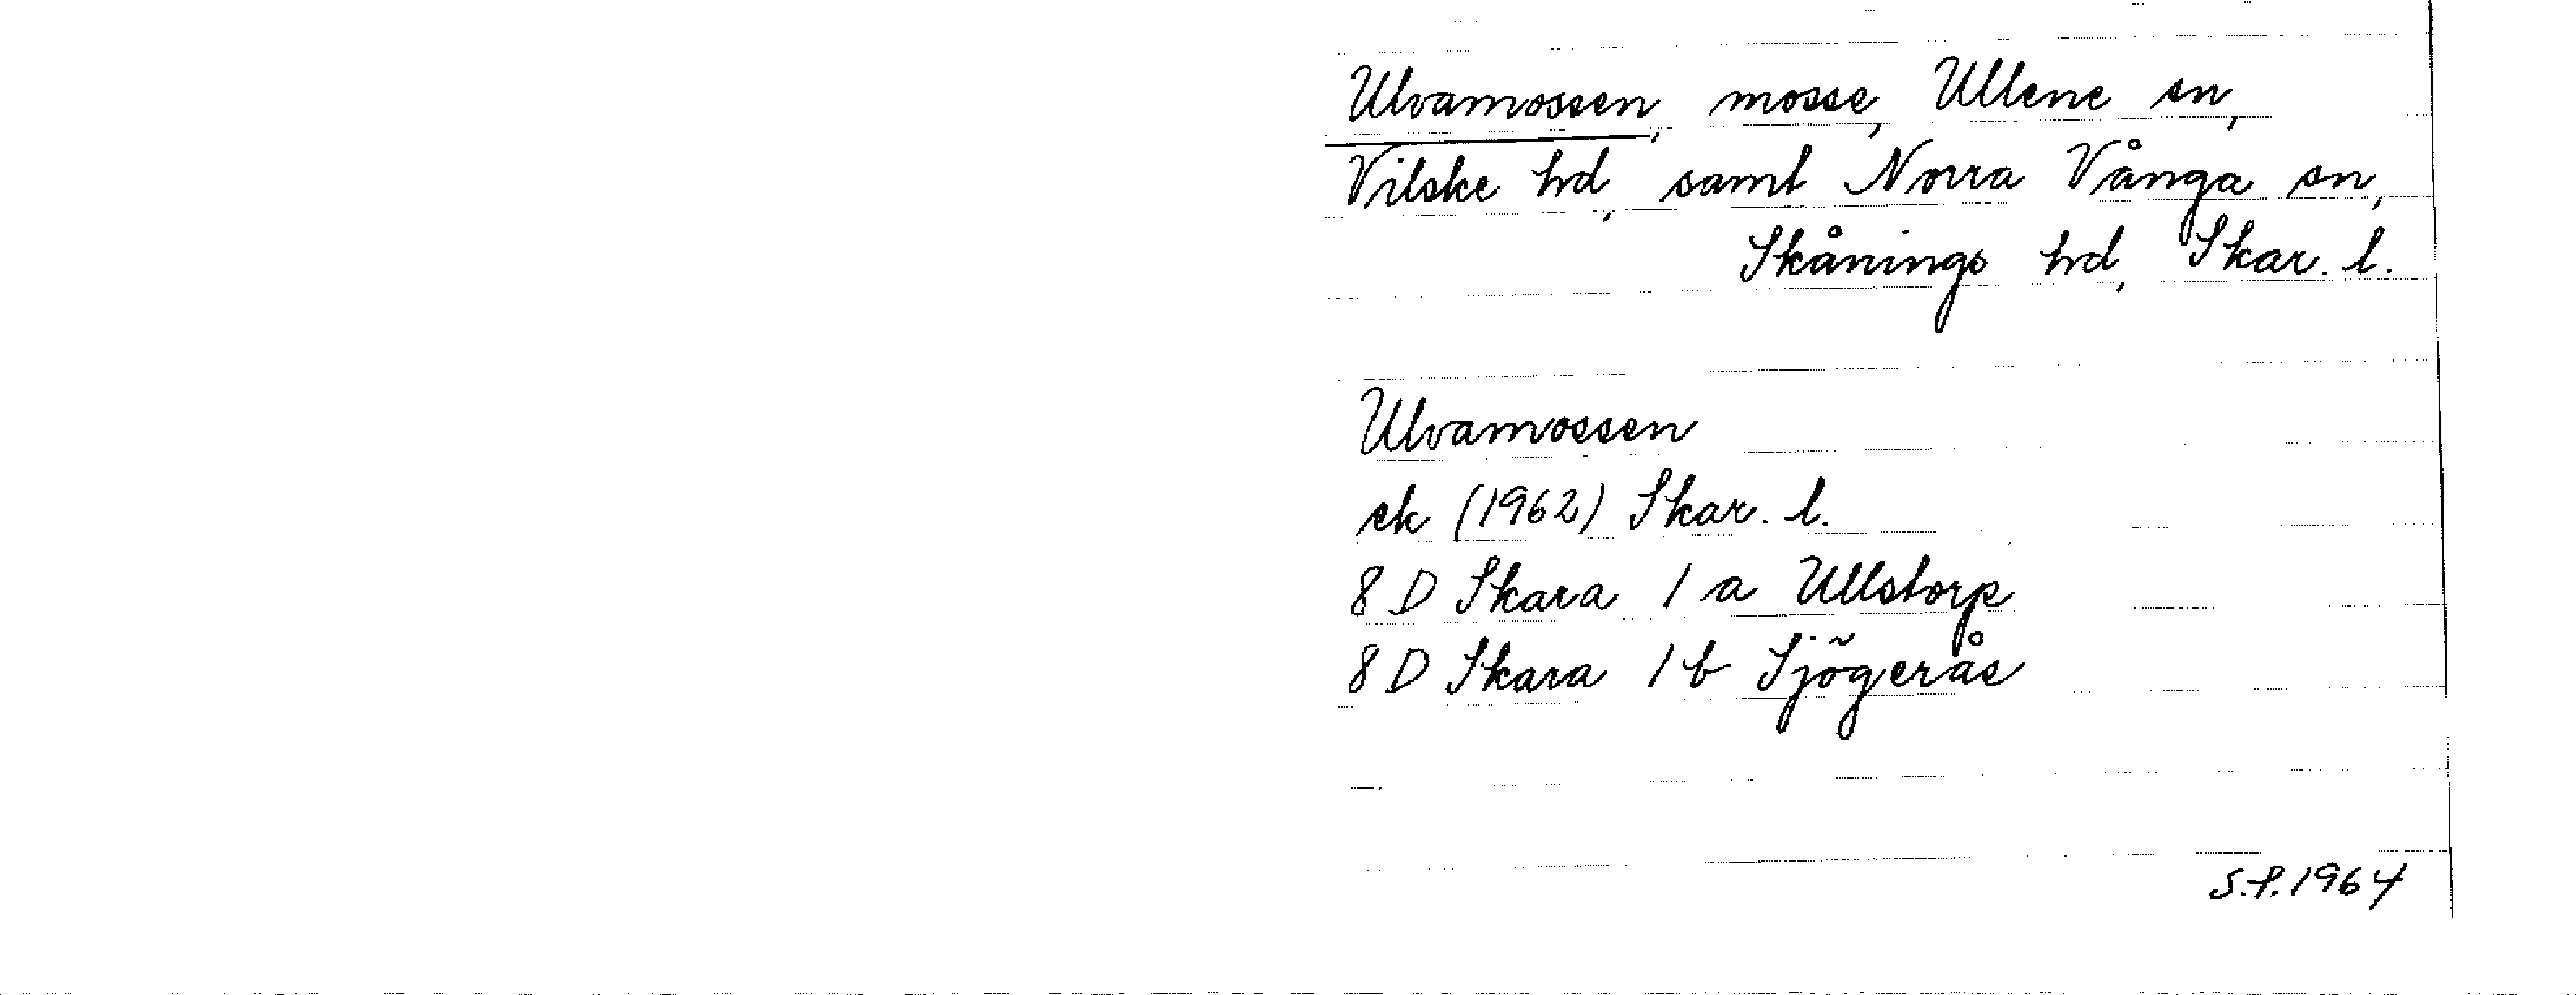 Ulvamossen, mosse, Ullene sn,
Vilske hd, samt Norra Vånga sn,
Skånings hd, Skar. l.
Ulvamossen
ek (1962) Skar. l.
8 D Skara 1 a Ullstorp
8 D Skara 1 b Sjögerås
S.P. 1964